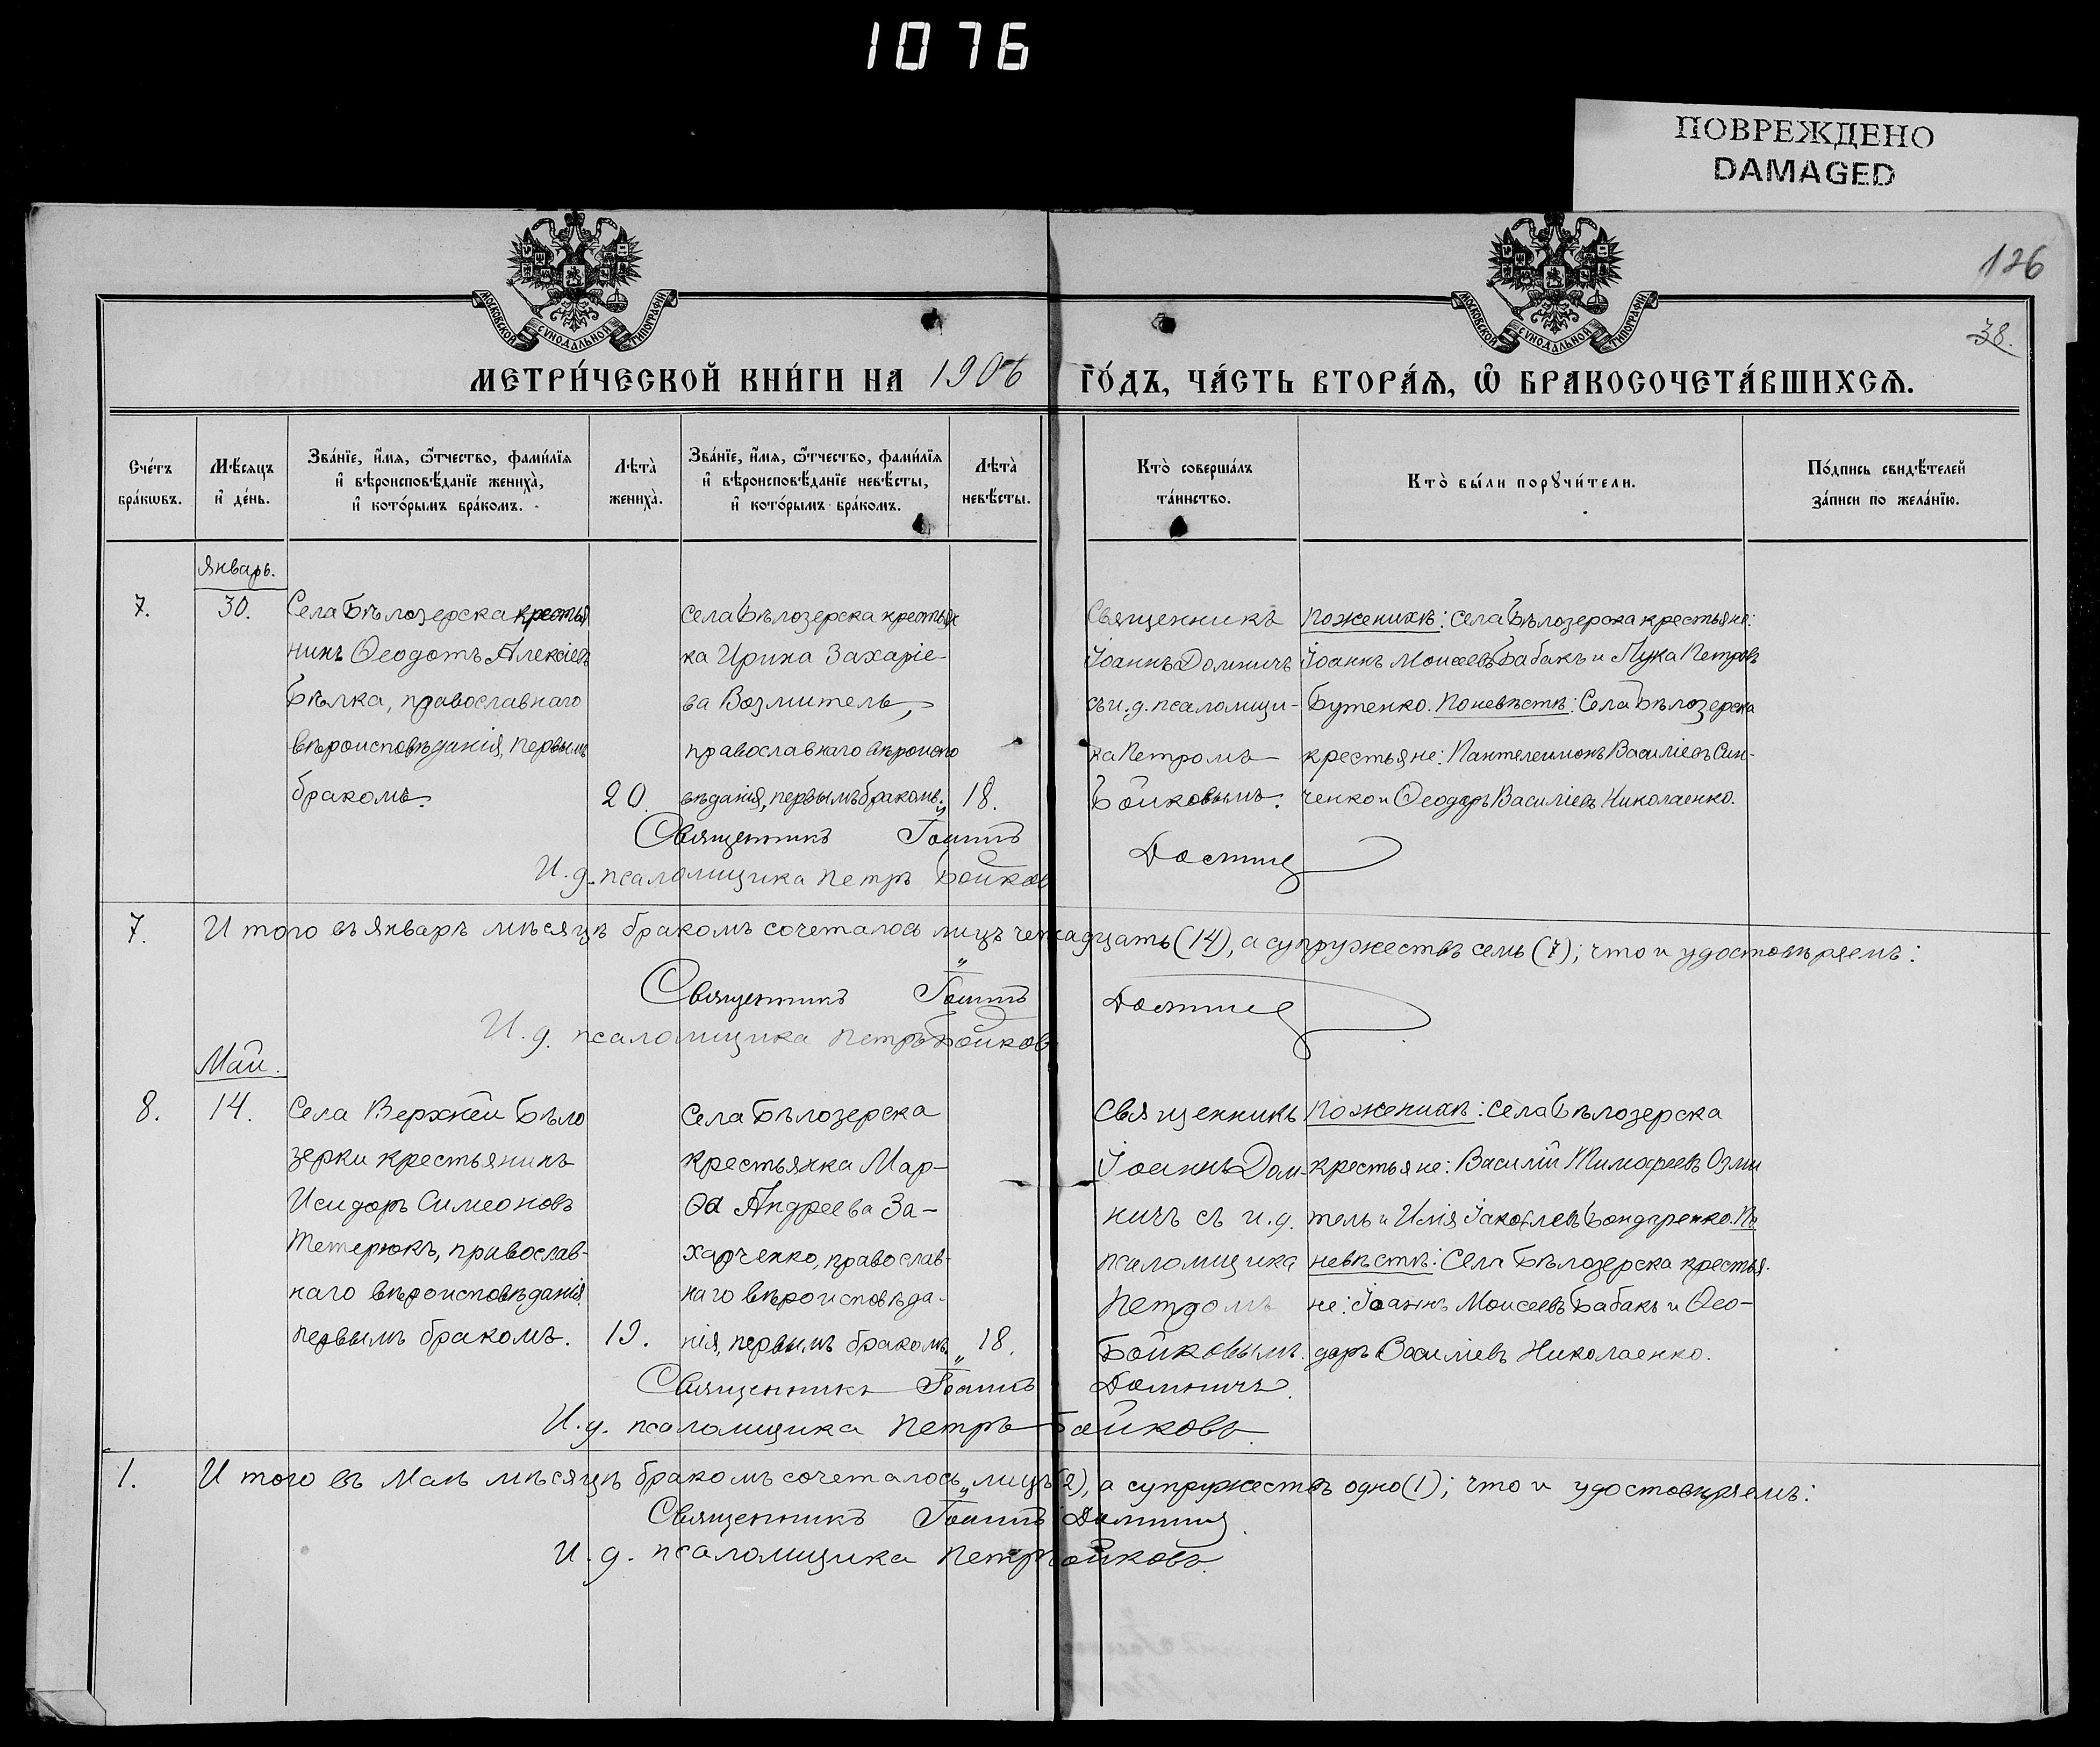 1076
ПОВРЕЖДЕНО
DAMAGED
126
38.
МОСКОВСКОЙ СѴНОДАЛЬНОЙ ТИПОГРАФІИ
МОСКОВСКОЙ СѴНОДАЛЬНОЙ ТИПОГРАФІИ
МЕТРИ́ЧЕСКОЙ КНИ́ГИ НА 1906 ГО́ДЪ, ЧА́СТЬ ВТОРА́Ѧ, Ѽ БРАКОСОЧЕТА́ВШИХСѦ.
Счетъ браковъ.
Мѣсяцъ и день.
Званіе, имя, отчество, фамилія
и вѣроисповѣданіе жениха,
и которымъ бракомъ.
Лѣта жениха.
Званіе, имя, отчество, фамилія
и вѣроисповѣданіе невѣсты,
и которымъ бракомъ.
Лѣта невѣсты.
Кто совершалъ таинство.
Кто были поручители.
Подпись свидѣтелей записи по желанію.
Январь.
7.
30.
Села Бѣлозерска крестья
нинъ Ѳеодотъ Алексіевъ
Бѣлка, православнаго
вѣроисповѣданія, первымъ
бракомъ.
20.
Села Бѣлозерска крестьян
ка Ирина Захаріе-
ва Возмитель,
православнаго вѣроиспо
вѣданія, первымъ бракомъ.
18.
Священникъ
Іоаннъ Домничъ
съ и.д. псаломщи-
ка Петромъ
Бойковымъ.
По женихѣ: Села Бѣлозерска крестьяне:
Іоаннъ Моисеевъ Бабакъ и Лука Петровъ
Бутенко. По невѣстѣ: Села Бѣлозерска
крестьяне: Пантелеимонъ Василіевъ Син-
ченко и Ѳеодоръ Василіевъ Николаенко.
Священникъ Іоаннъ Домничъ
И.д. псаломщика Петръ Бойковъ
7. И того въ Январѣ мѣсяцѣ бракомъ сочеталось лицъ четырнадцать (14), а супружествъ семь (7); что и удостовѣряемъ:
Священникъ Іоаннъ Домничъ
И.д. псаломщика Петръ Бойковъ
Май.
8.
14.
Села Верхней Бѣло
зерки крестьянинъ
Исидоръ Симеоновъ
Тетерюкъ, православ-
наго вѣроисповѣданія,
первымъ бракомъ.
19.
Села Бѣлозерска
крестьянка Мар-
ѳа Андреева За-
харченко, православ-
наго вѣроисповѣда-
нія, первымъ бракомъ.
18.
Священникъ
Іоаннъ Дом-
ничъ съ и.д.
псаломщика
Петромъ
Бойковымъ.
По женихѣ: Села Бѣлозерска
крестьяне: Василій Тимофеевъ Озми
тель и Илія Іаковлевъ Бондаренко. По
невѣстѣ: Села Бѣлозерска крестья-
не: Іоаннъ Моисеевъ Бабакъ и Ѳео-
доръ Василіевъ Николаенко.
Священникъ Іоаннъ Домничъ.
И.д. псаломщика Петръ Бойковъ.
1. И того въ Маѣ мѣсяцѣ бракомъ сочеталось лицъ (2), а супружествъ одно (1); что и удостовѣряемъ:
Священникъ Іоаннъ Домничъ.
И.д. псаломщика Петръ Бойковъ.